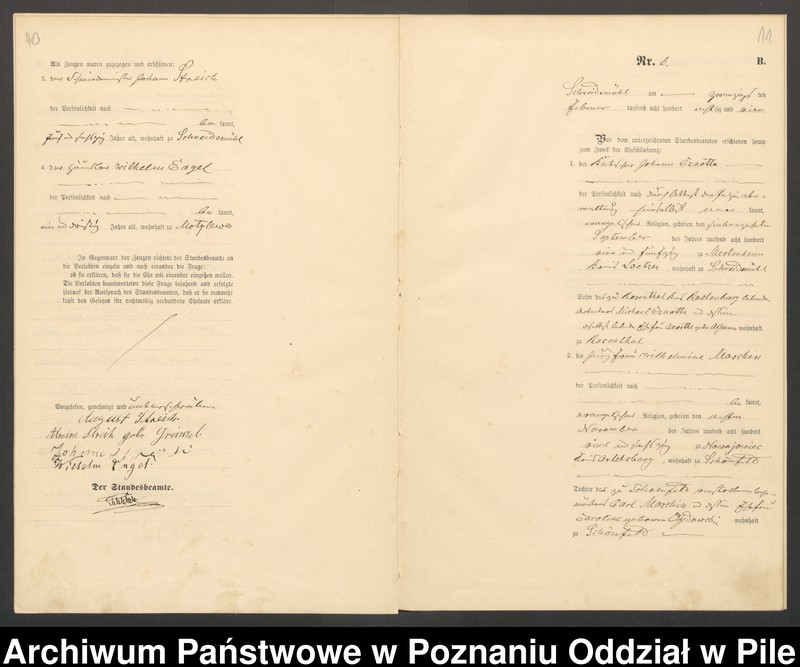 10
Als Zeugen waren zugezogen und erschienen:
3. der Schmiedemeister Johann Streich
der Persönlichkeit nach
kannt,
fünf und sechszig Jahre alt, wohnhaft zu Schneidemühl
4. der Händler Wilhelm Engel
der Persönlichkeit nach
kannt,
ein und dreißig Jahre alt, wohnhaft zu Motylewo
In Gegenwart der Zeugen richtete der Standesbeamte an
die Verlobten einzeln und nach einander die Frage:
ob sie erklären, daß sie die Ehe mit einander eingehen wollen.
Die Verlobten beantworteten diese Frage bejahend und erfolgte
hierauf der Ausspruch des Standesbeamten, daß er sie nunmehr
kraft des Gesetzes für rechtmäßig verbundene Eheleute erkläre.
Vorgelesen, genehmigt und unterschrieben
August Streich
Alwine Streich geb.
Wilhelm Engel
Der Standesbeamte.
11
Nr. 6. B.
Schneidemühl am zwanzigsten
Februar tausend acht hundert achtzig und vier
Vor dem unterzeichneten Standesbeamten erschienen heute
zum Zweck der Eheschließung:
1. der Kutscher Johann
der Persönlichkeit nach durch Attest der
kannt,
evangelischer Religion, geboren den siebenzehnten
September des Jahres tausend acht hundert
vier und fünfzig zu
Kreis Loetzen, wohnhaft zu Schneidemühl
Sohn des zu Rosenthal Kreis Rastenburg lebenden
Michael und dessen
Ehefrau wohnhaft
zu Rosenthal
2. die Jungfrau Wilhelmine Maschin
der Persönlichkeit nach
kannt,
evangelischer Religion, geboren den ersten
November des Jahres tausend acht hundert
und sechszig zu
Kreis Ortelsburg, wohnhaft zu Schönfeld
Tochter des zu Schoenfeld verstorbenen
Carl Maschin und dessen Ehefrau
Caroline geborenen wohnhaft
zu Schönfeld
Archiwum Państwowe w Poznaniu Oddział w Pile